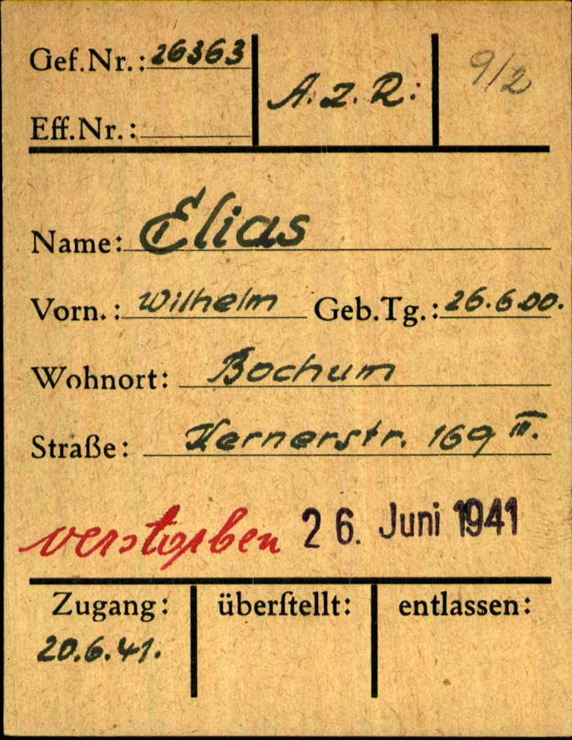 Gef.Nr.: 26363
A.Z.R.:
9/2
Eff.Nr.:
Name: Elias
Vorn.: Wilhelm Geb.Tg.: 26.6.00.
Wohnort: Bochum
Straße: Hernerstr. 169 III.
verstorben 26. Juni 1941
Zugang: überſtellt: entlassen:
20.6.41.